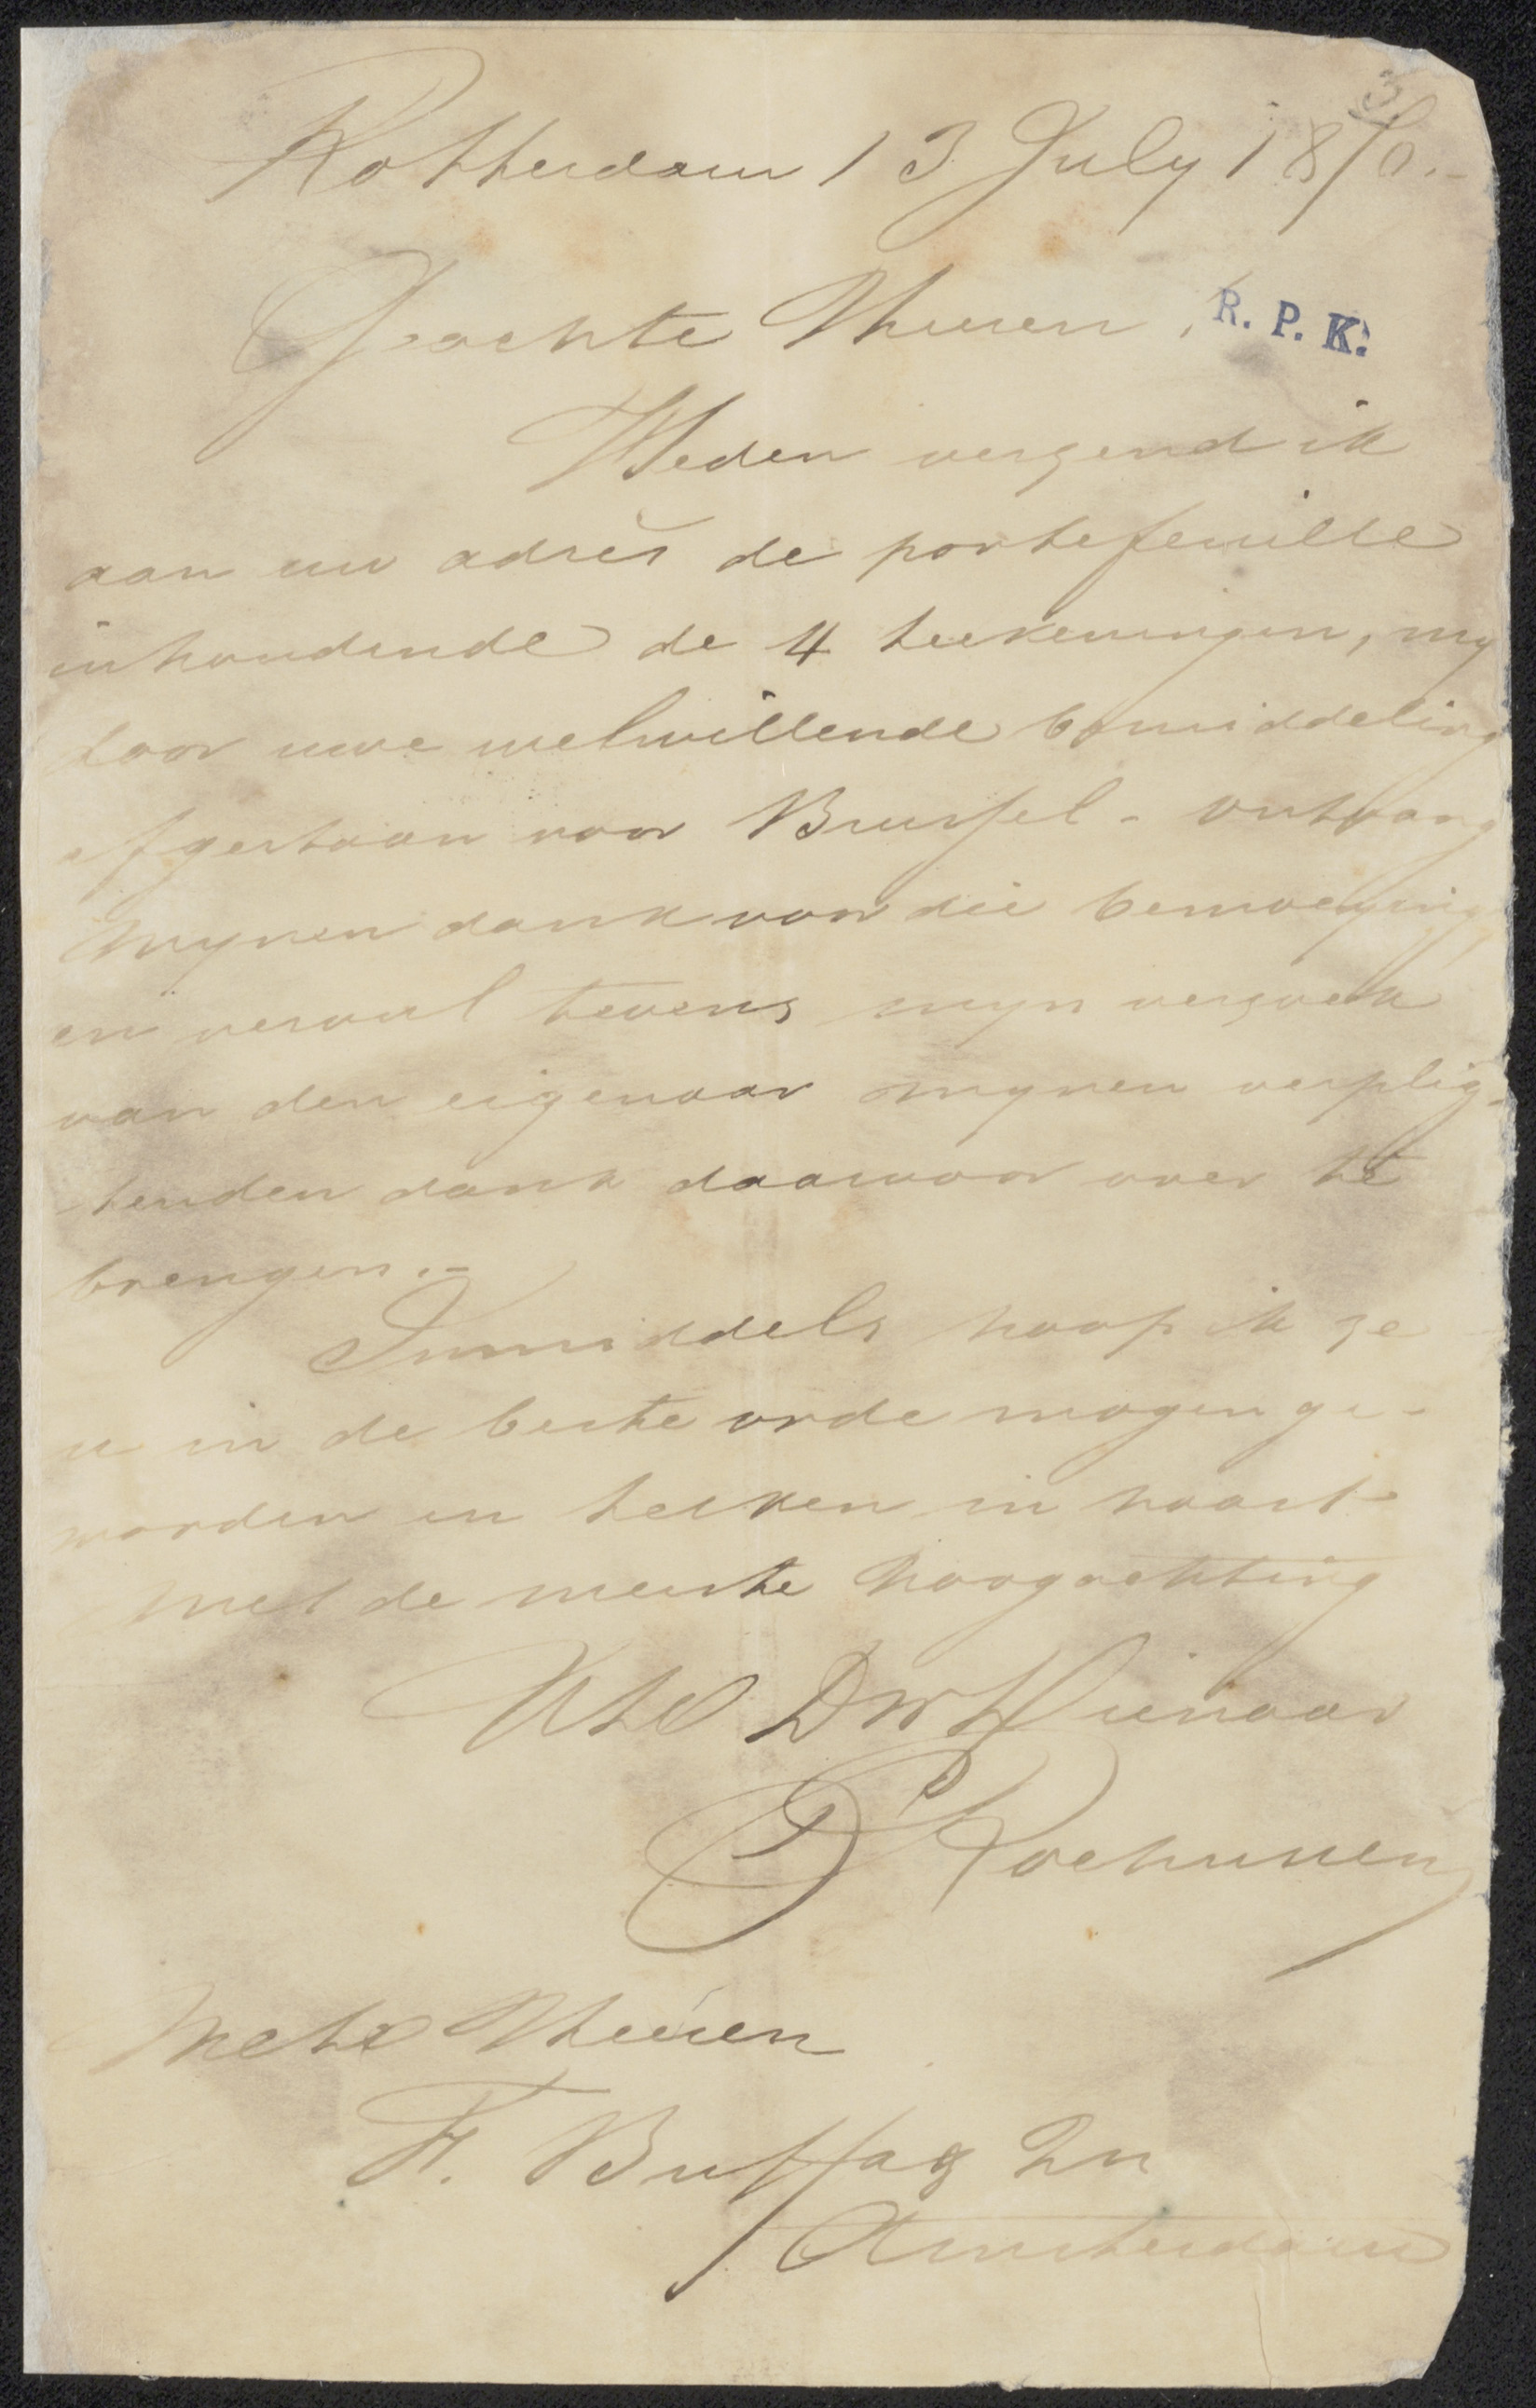 3
Rotterdam 13 July 1870.-
Geachte Heeren, R. P. K.
Heden verzend ik
aan uw adres de portefeuille
inhoudende de 4 teekeningen, my
door uwe welwillende bemiddeling
afgestaan voor Brussel - ontvang
mynen dank voor die bemoeying
en vervul tevens myn verzoek
van den eigenaar mynen verplig-
tenden dank daarvoor over te
brengen.-
Inmiddels hoop ik ze
u in de beste orde mogen ge-
worden en teeken in haast
met de meeste hoogachting
UEd DW Dienaar
Rochussen
Heeren
F. Buffa & Zn
Amsterdam